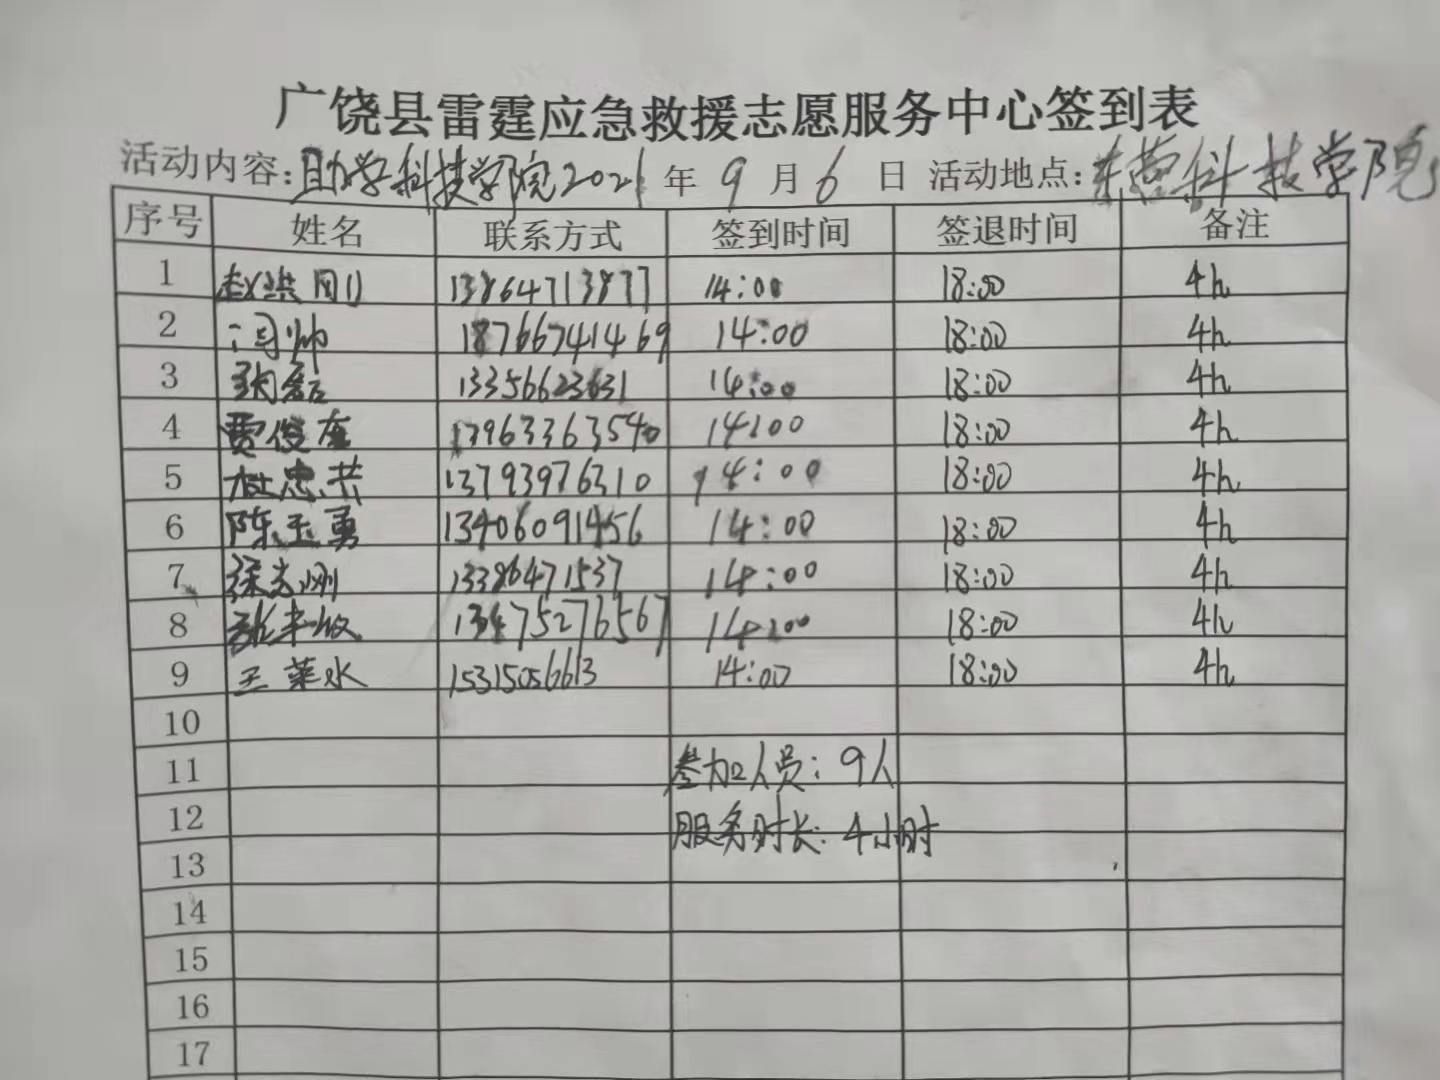 广饶县雷霆应急救援志愿服务中心签到表
活动内容：助学科技学院2021年9月6日 活动地点：东营科技学院
序号 姓名 联系方式 签到时间 签退时间 备注
1 赵洪刚 13864713877 14:00 18:00 4h
2 闫帅 18766741469 14:00 18:00 4h
3 13356623631 14:00 18:00 4h
4 贾俊奎 13963363540 14:00 18:00 4h
5 杜忠共 13793976310 14:00 18:00 4h
6 陈玉勇 13406091456 14:00 18:00 4h
7 徐志刚 13386471537 14:00 18:00 4h
8 13475276567 14:00 18:00 4h
9 王莱水 15315056613 14:00 18:00 4h
10
11 参加人员：9人
12 服务时长：4小时
13
14
15
16
17